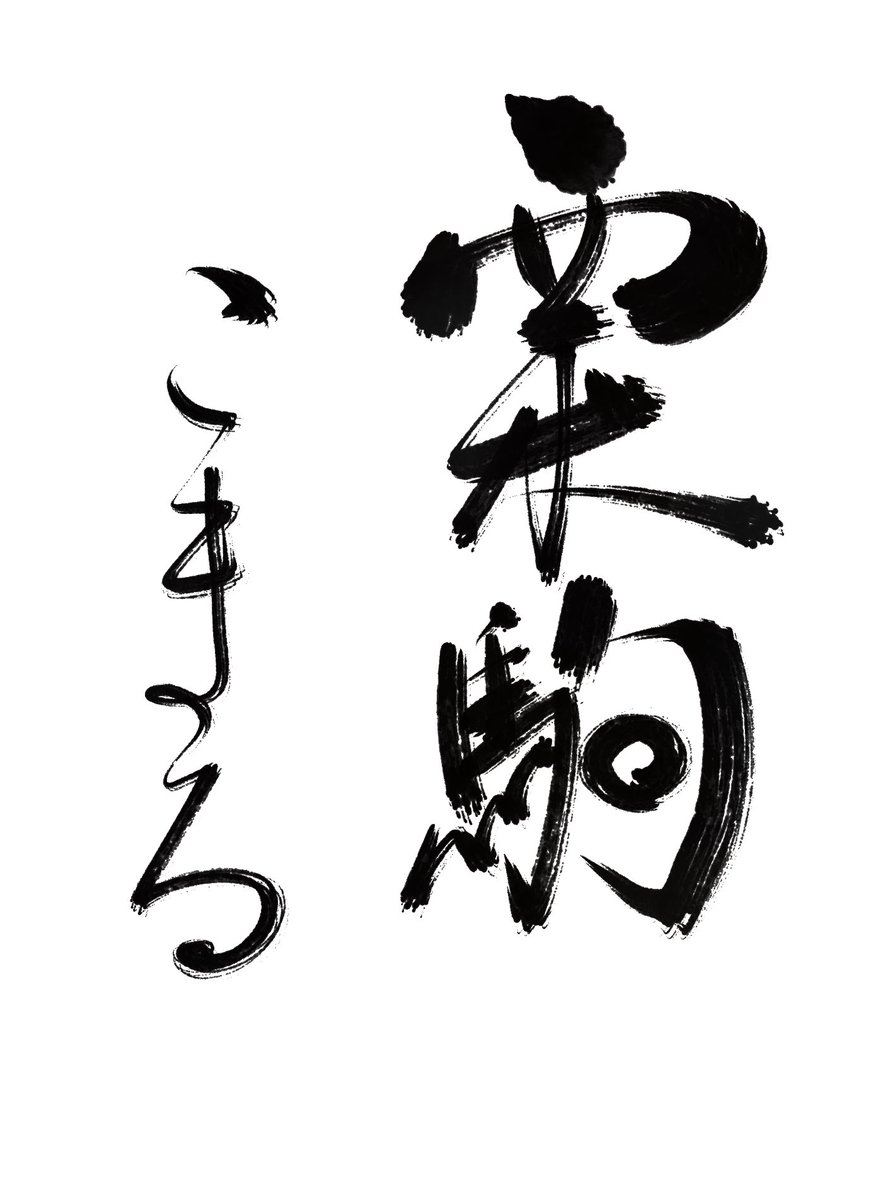 栗駒
こまる